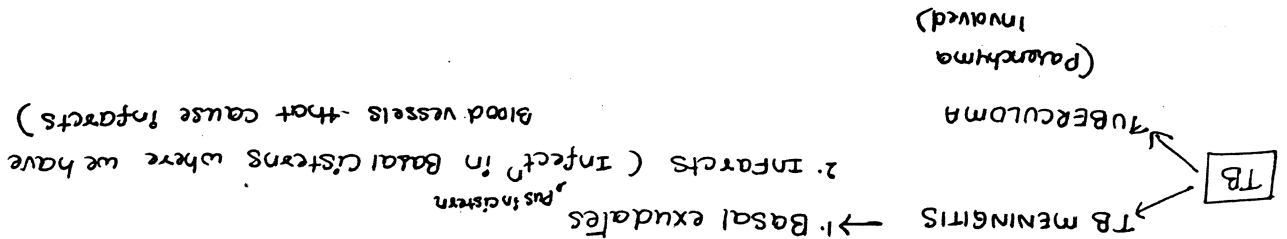 TB
TB MENINGITIS → 1. Basal exudates
, Pus in cistern
2. Infarcts ( Infectⁿ in Basal cisterns where we have
Blood vessels that cause infarcts )
TUBERCULOMA
(Parenchyma
involved)